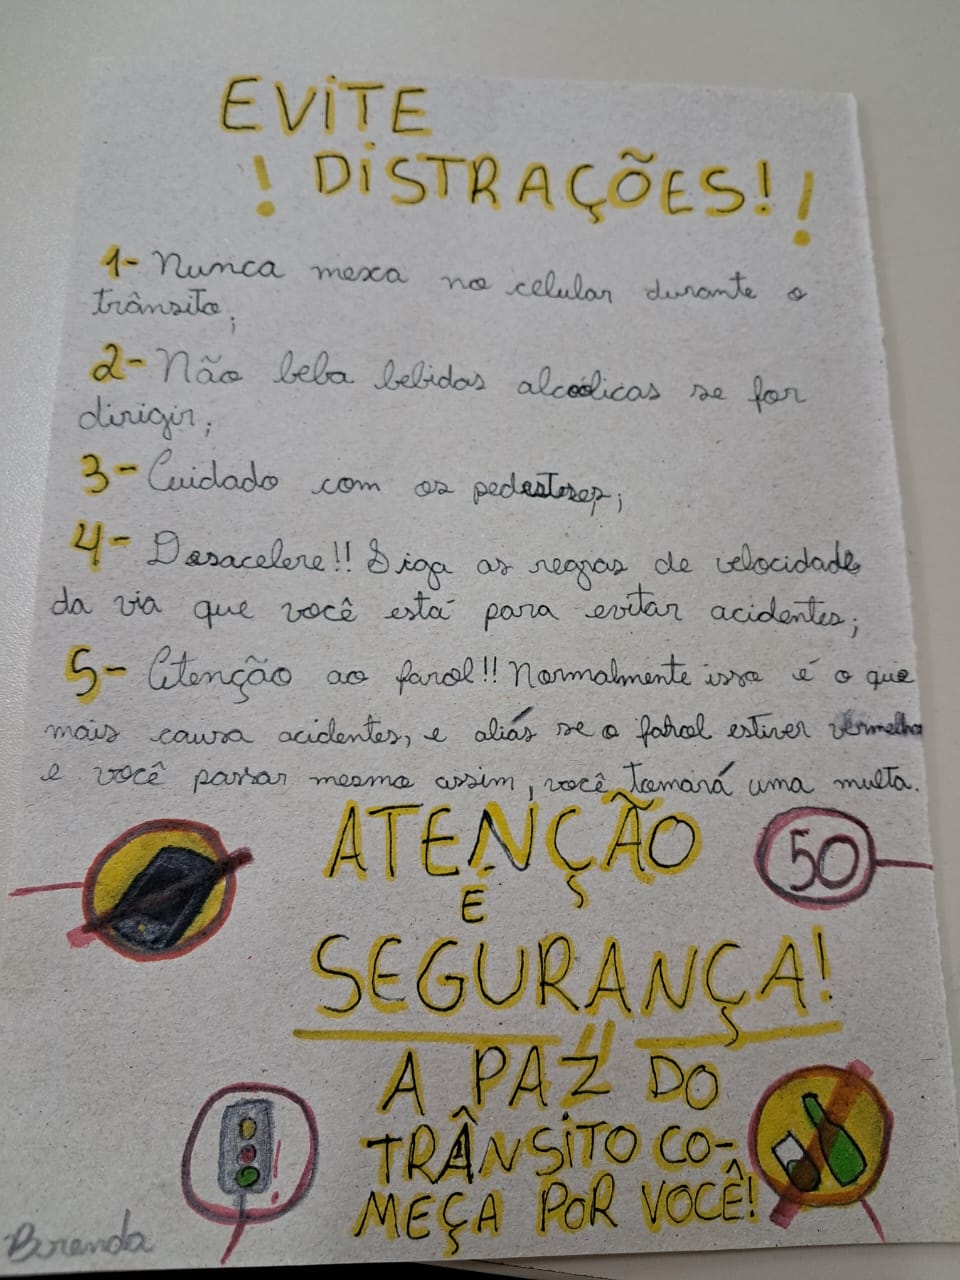 EVITE
! DISTRAÇÕES!!
1- Nunca mexa no celular durante o
trânsito;
2- Não beba bebidas alcoólicas se for
dirigir;
3- Cuidado com os pedestres;
4- Desacelere!! Siga as regras de velocidade
da via que você está para evitar acidentes;
5- Atenção ao farol!! Normalmente isso é o que
mais causa acidentes, e aliás se o farol estiver vermelho
e você passar mesmo assim, você tomará uma multa.
ATENÇÃO
50
E
SEGURANÇA!
"A PAZ DO
TRÂNSITO CO-
MEÇA POR VOCÊ!
!
Brenda